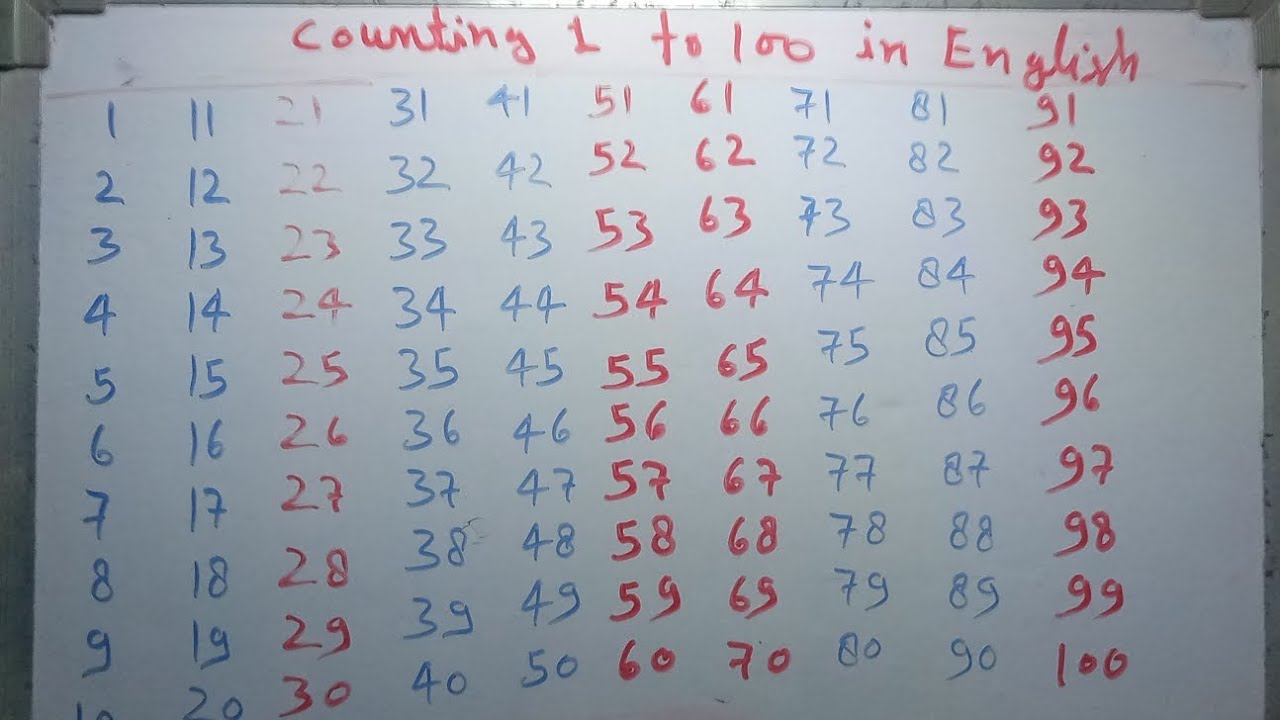 Counting 1 to 100 in English
1 11 21 31 41 51 61 71 81 91
2 12 22 32 42 52 62 72 82 92
3 13 23 33 43 53 63 73 83 93
4 14 24 34 44 54 64 74 84 94
5 15 25 35 45 55 65 75 85 95
6 16 26 36 46 56 66 76 86 96
7 17 27 37 47 57 67 77 87 97
8 18 28 38 48 58 68 78 88 98
9 19 29 39 49 59 69 79 89 99
10 20 30 40 50 60 70 80 90 100